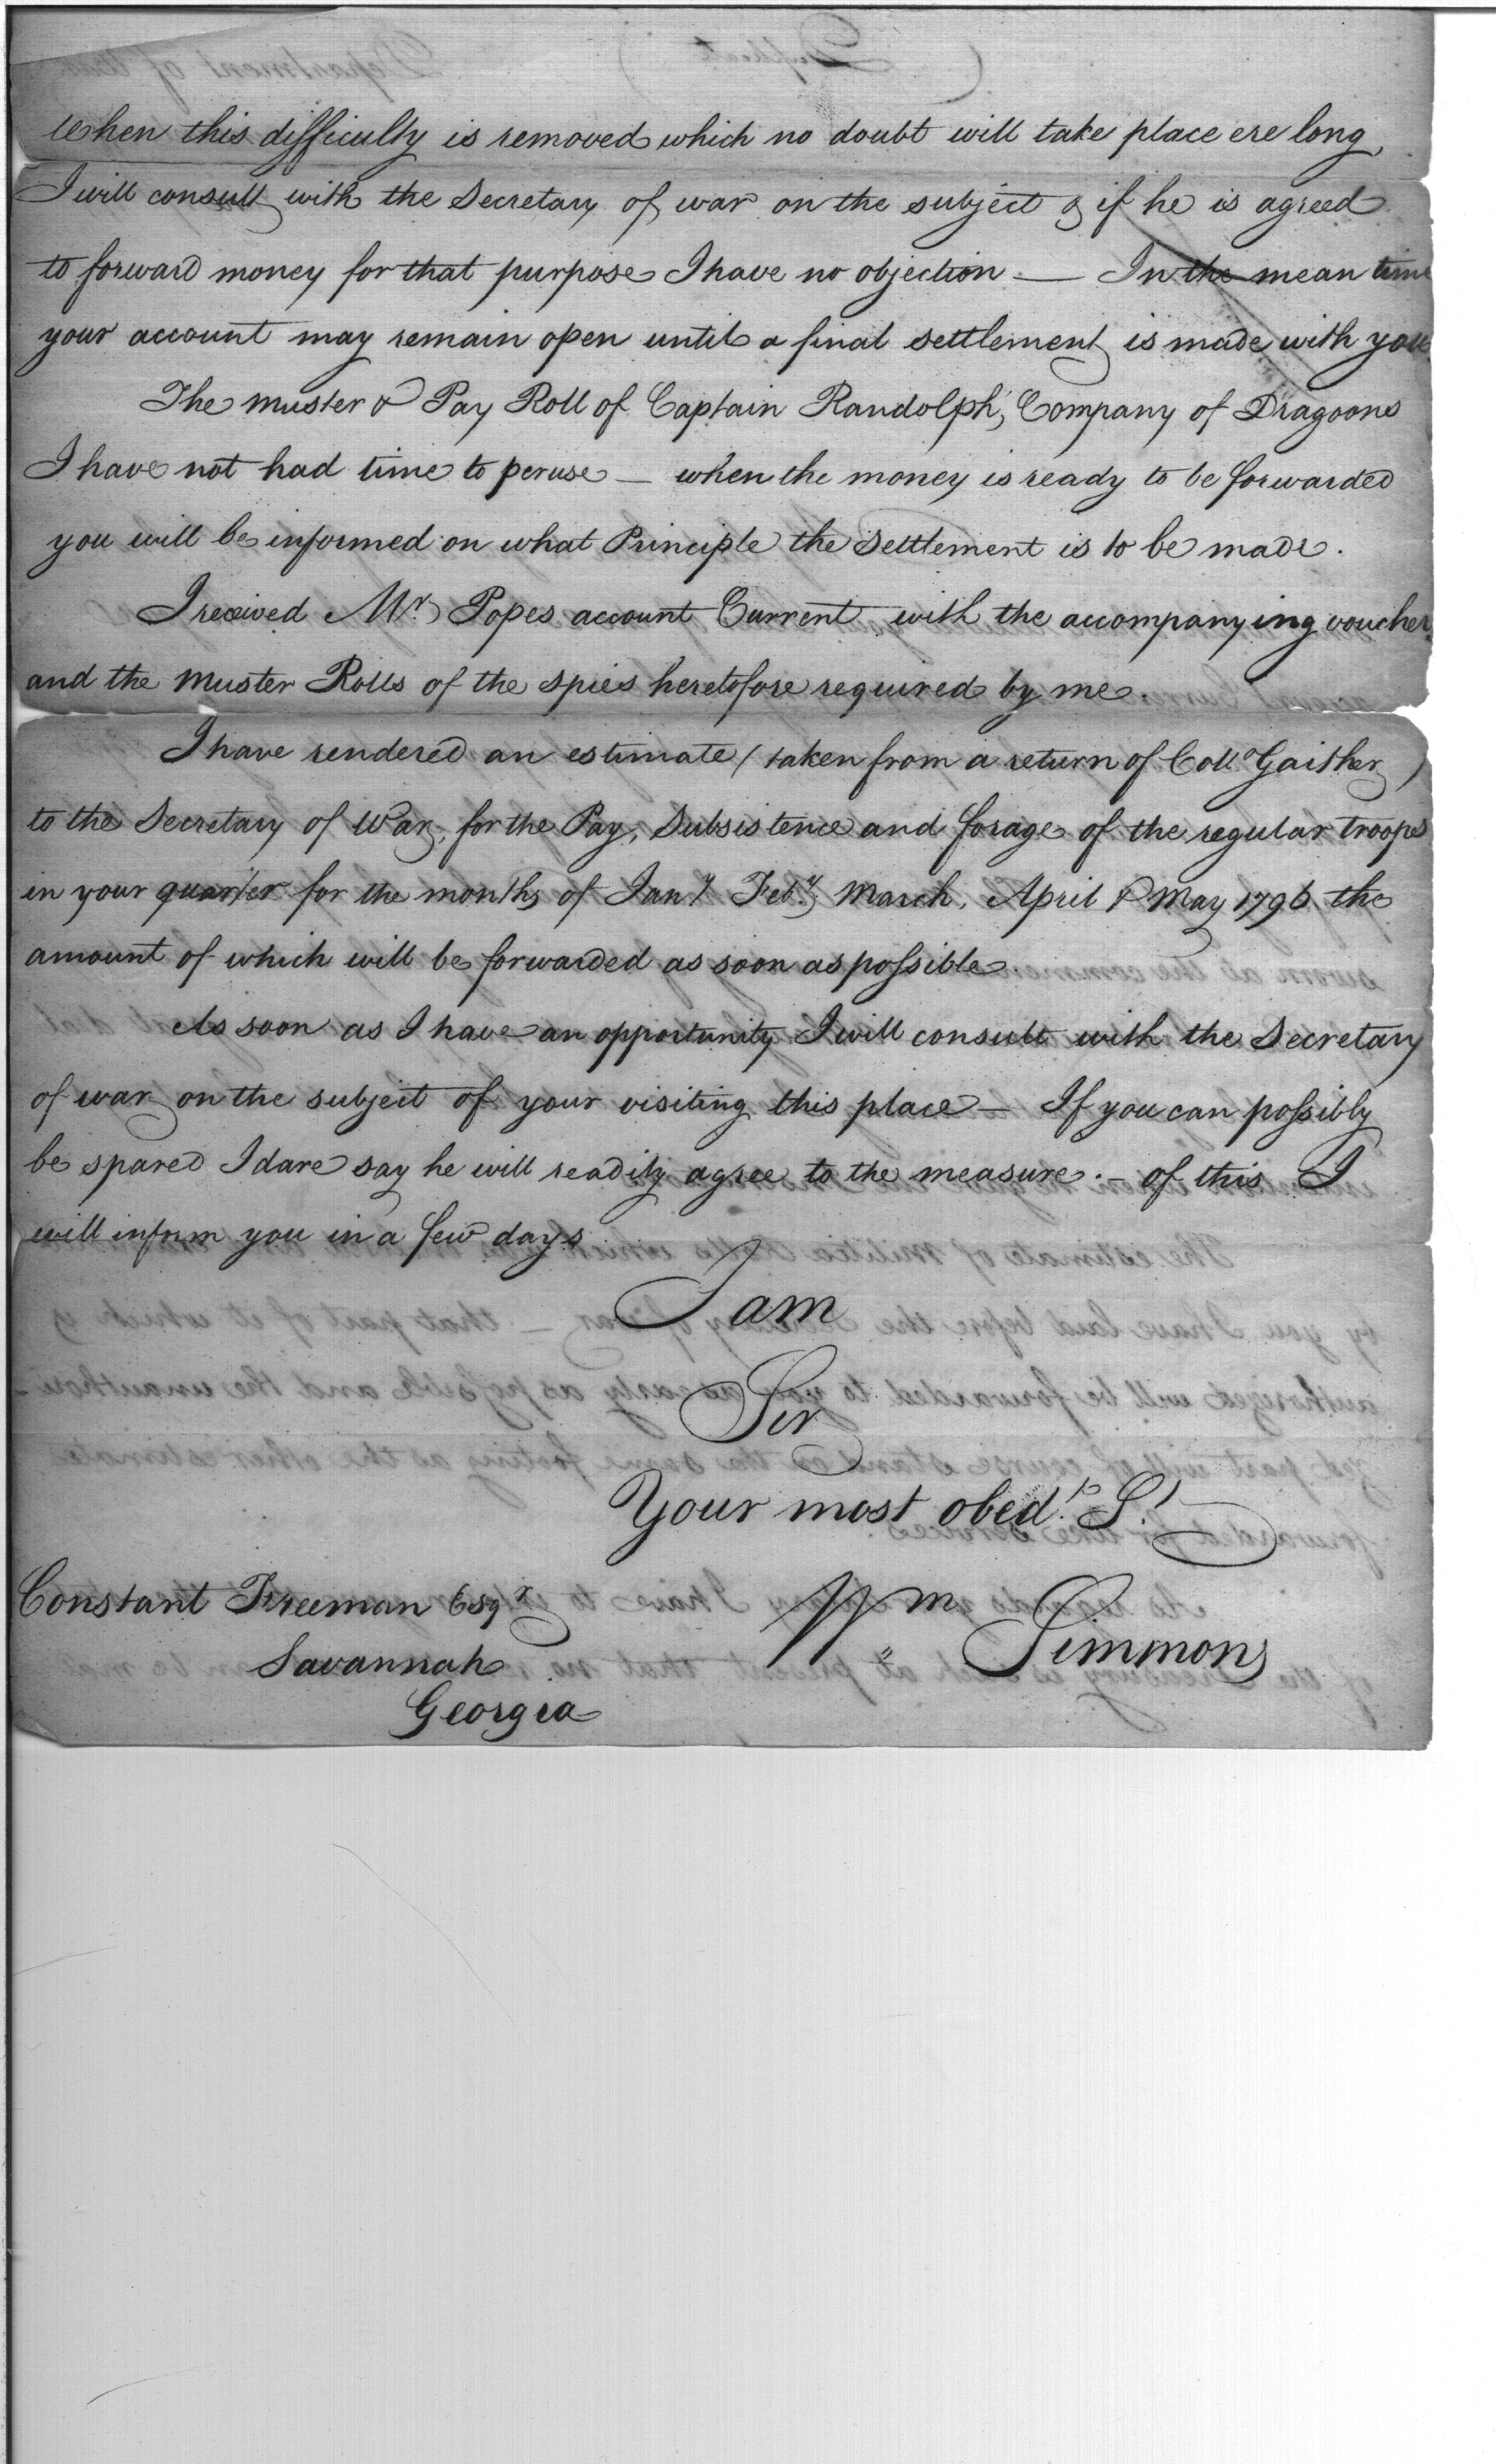 when this difficulty is removed which no doubt will take place ere long,
I will consult with the Secretary of war on the subject & if he is agreed
to forward money for that purpose I have no objection — In the mean time
your account may remain open until a final settlement is made with you
The muster & Pay Roll of Captain Randolph's Company of Dragoons
I have not had time to peruse — when the money is ready to be forwarded
you will be informed on what Principle the Settlement is to be made.
I received Mr. Popes account Current with the accompanying voucher
and the Muster Rolls of the spies heretofore required by me.
I have rendered an estimate (taken from a return of Collo Gaither)
to the Secretary of War, for the Pay, Subsistence and forage of the regular troops
in your quarter for the months of Jany Feby. March, April & May 1796 the
amount of which will be forwarded as soon as possible.
As soon as I have an opportunity I will consult with the Secretary
of war on the subject of your visiting this place — If you can possibly
be spared I dare say he will readily agree to the measure. — of this I
will inform you in a few days
I am
Sir
Your most obedt. St.
Constant Freeman Esqr
Wm Simmons
Savannah
Georgia